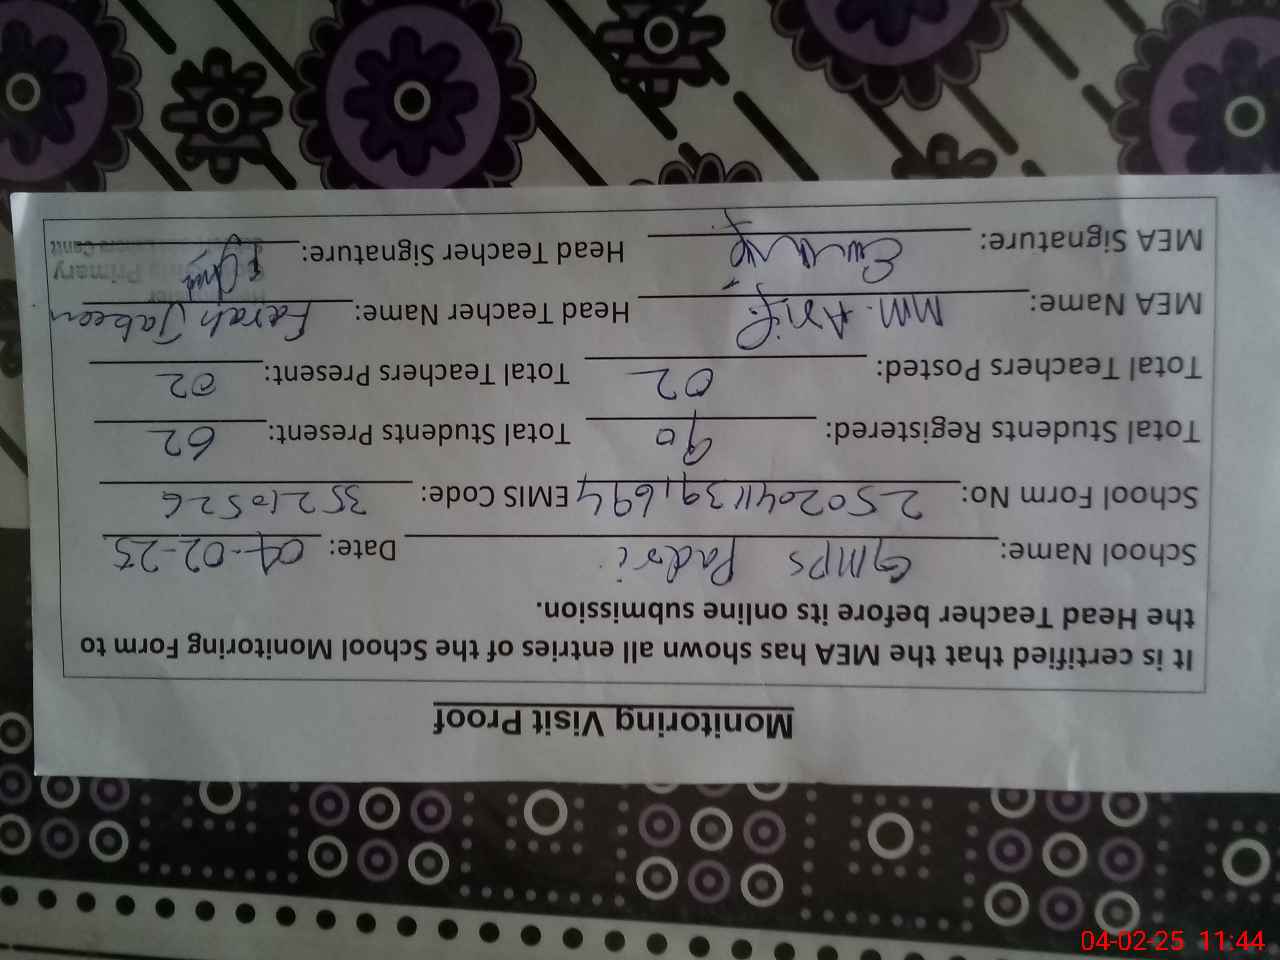 Monitoring Visit Proof
It is certified that the MEA has shown all entries of the School Monitoring Form to
the Head Teacher before its online submission.
School Name: GMPS Padri Date: 04-02-25
School Form No: 25020411391694 EMIS Code: 35210526
Total Students Registered: 90 Total Students Present: 62
Total Teachers Posted: 02 Total Teachers Present: 02
MEA Name: MM. Asif Head Teacher Name: Farah Jabeen
MEA Signature: Head Teacher Signature:
Primary
Lahore Cantt
04-02-25 11:44